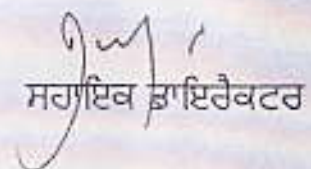 ਸਹਾਇਕ ਡਾਇਰੈਕਟਰ